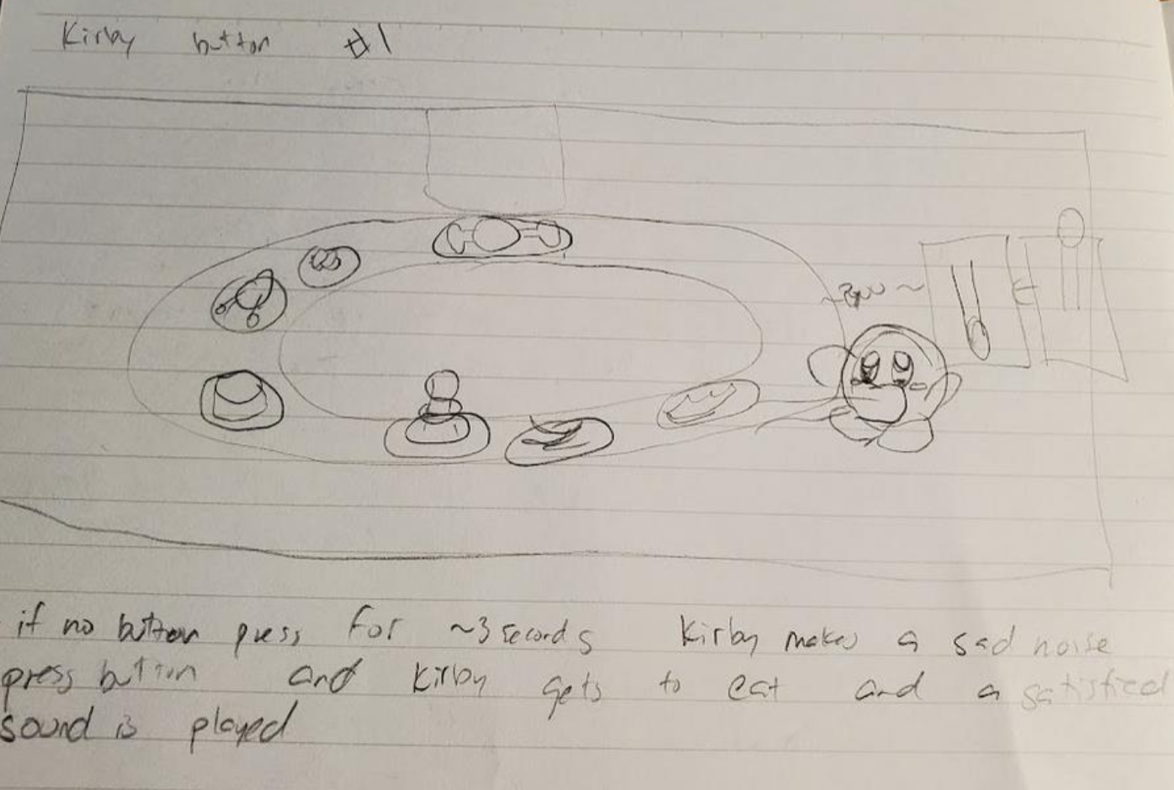 Kirby button #1
if no button press for ~3 seconds Kirby makes a sad noise
press button and Kirby gets to eat and a satisfied
sound is played